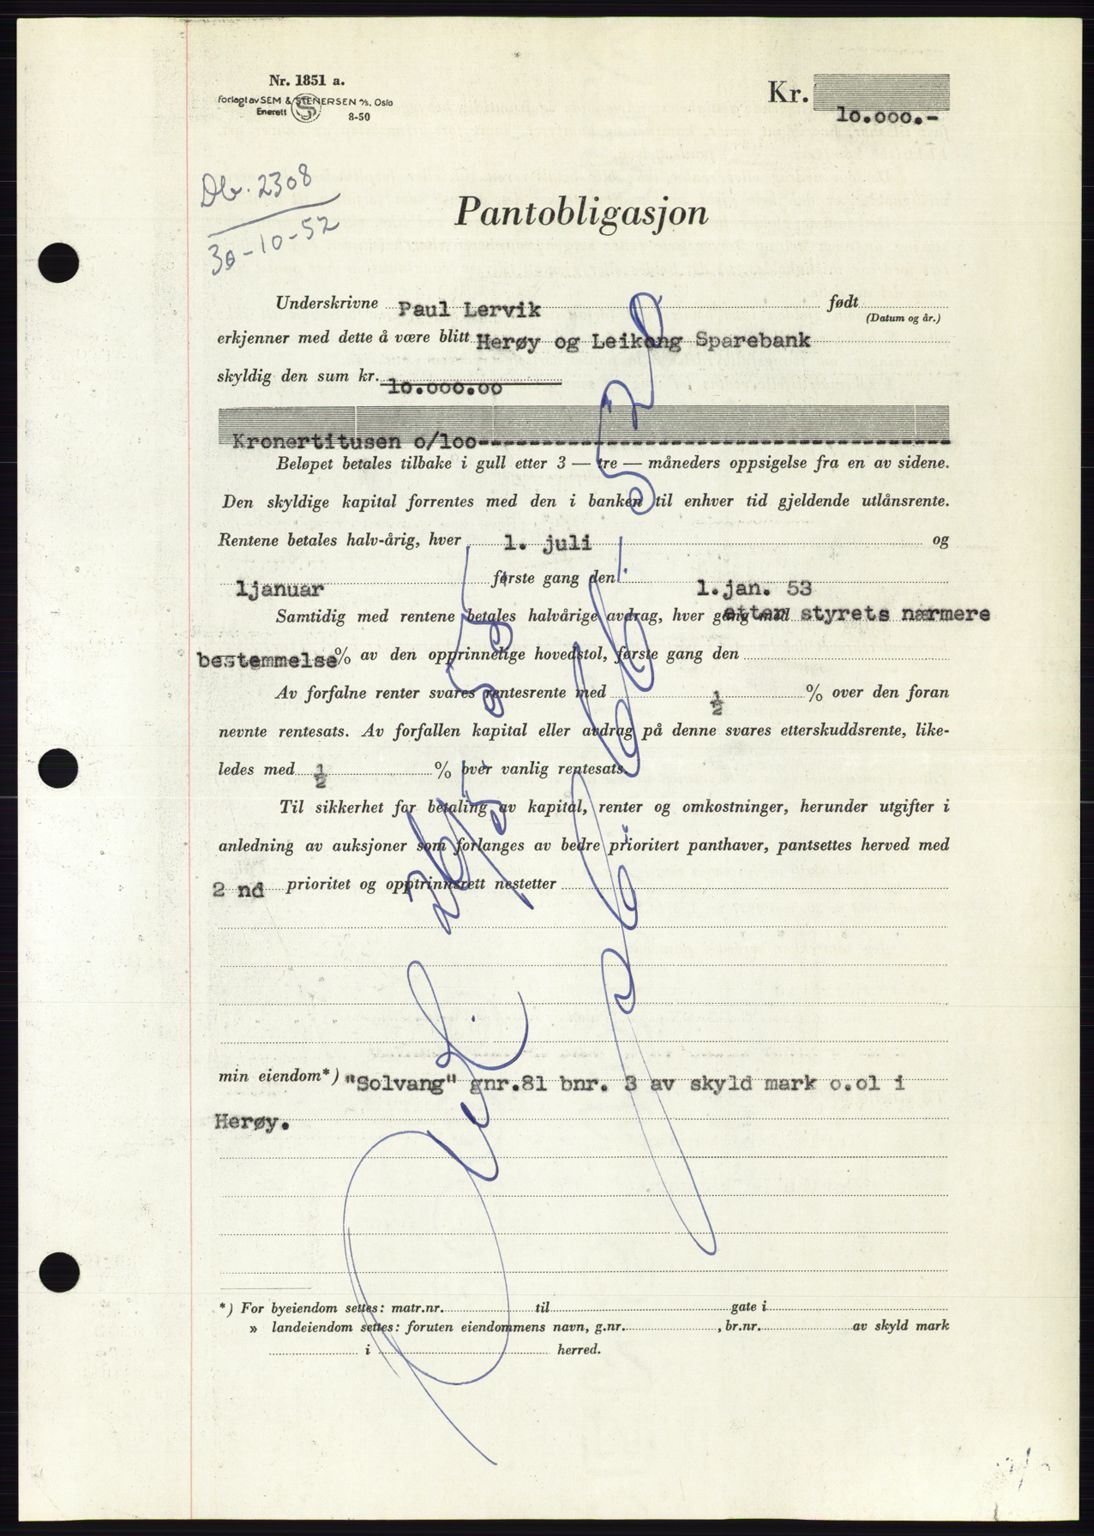 Nr. 1851 a.
Forlagt av SEM & STENERSEN A/S, Oslo
Enerett 8-50
Kr. 10.000.-
Dbr. 2308
30-10-52
Pantobligasjon
Underskrivne Paul Lervik født
(Datum og år.)
erkjenner med dette å være blitt Herøy og Leikong Sparebank
skyldig den sum kr. 10.000.00
Kronertitusen o/100
Beløpet betales tilbake i gull etter 3 — tre — måneders oppsigelse fra en av sidene.
Den skyldige kapital forrentes med den i banken til enhver tid gjeldende utlånsrente.
Rentene betales halv-årig, hver 1. juli og
1januar første gang den 1.jan. 53
Samtidig med rentene betales halvårige avdrag, hver gang med etter styrets nærmere
bestemmelse % av den opprinnelige hovedstol, første gang den
Av forfalne renter svares rentesrente med ½ % over den foran
nevnte rentesats. Av forfallen kapital eller avdrag på denne svares etterskuddsrente, like-
ledes med ½ % over vanlig rentesats.
Til sikkerhet for betaling av kapital, renter og omkostninger, herunder utgifter i
anledning av auksjoner som forlanges av bedre prioritert panthaver, pantsettes herved med
2 nd prioritet og opptrinnsrett nestetter
min eiendom*) "Solvang" gnr.81 bnr. 3 av skyld mark o.ol i
Herøy.
*) For byeiendom settes: matr.nr. til gate i
» landeiendom settes: foruten eiendommens navn, g.nr. , br.nr. av skyld mark
i herred.